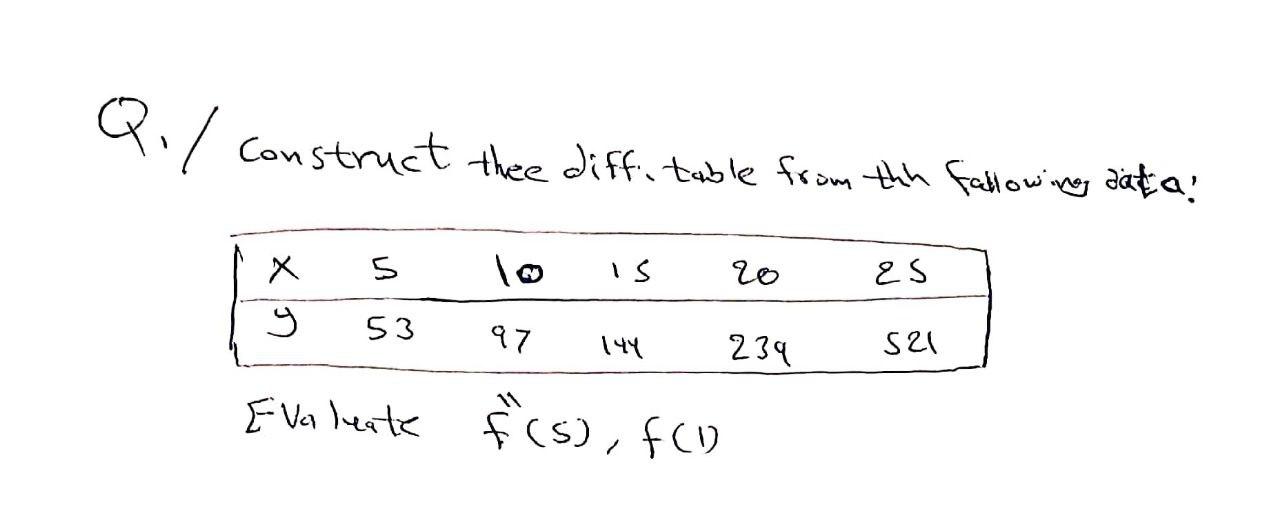 Q./ Construct thee diff. table from thh fallowing data:
X 5 10 15 20 25
y 53 97 144 239 521
Evaluate f"(5), f(1)